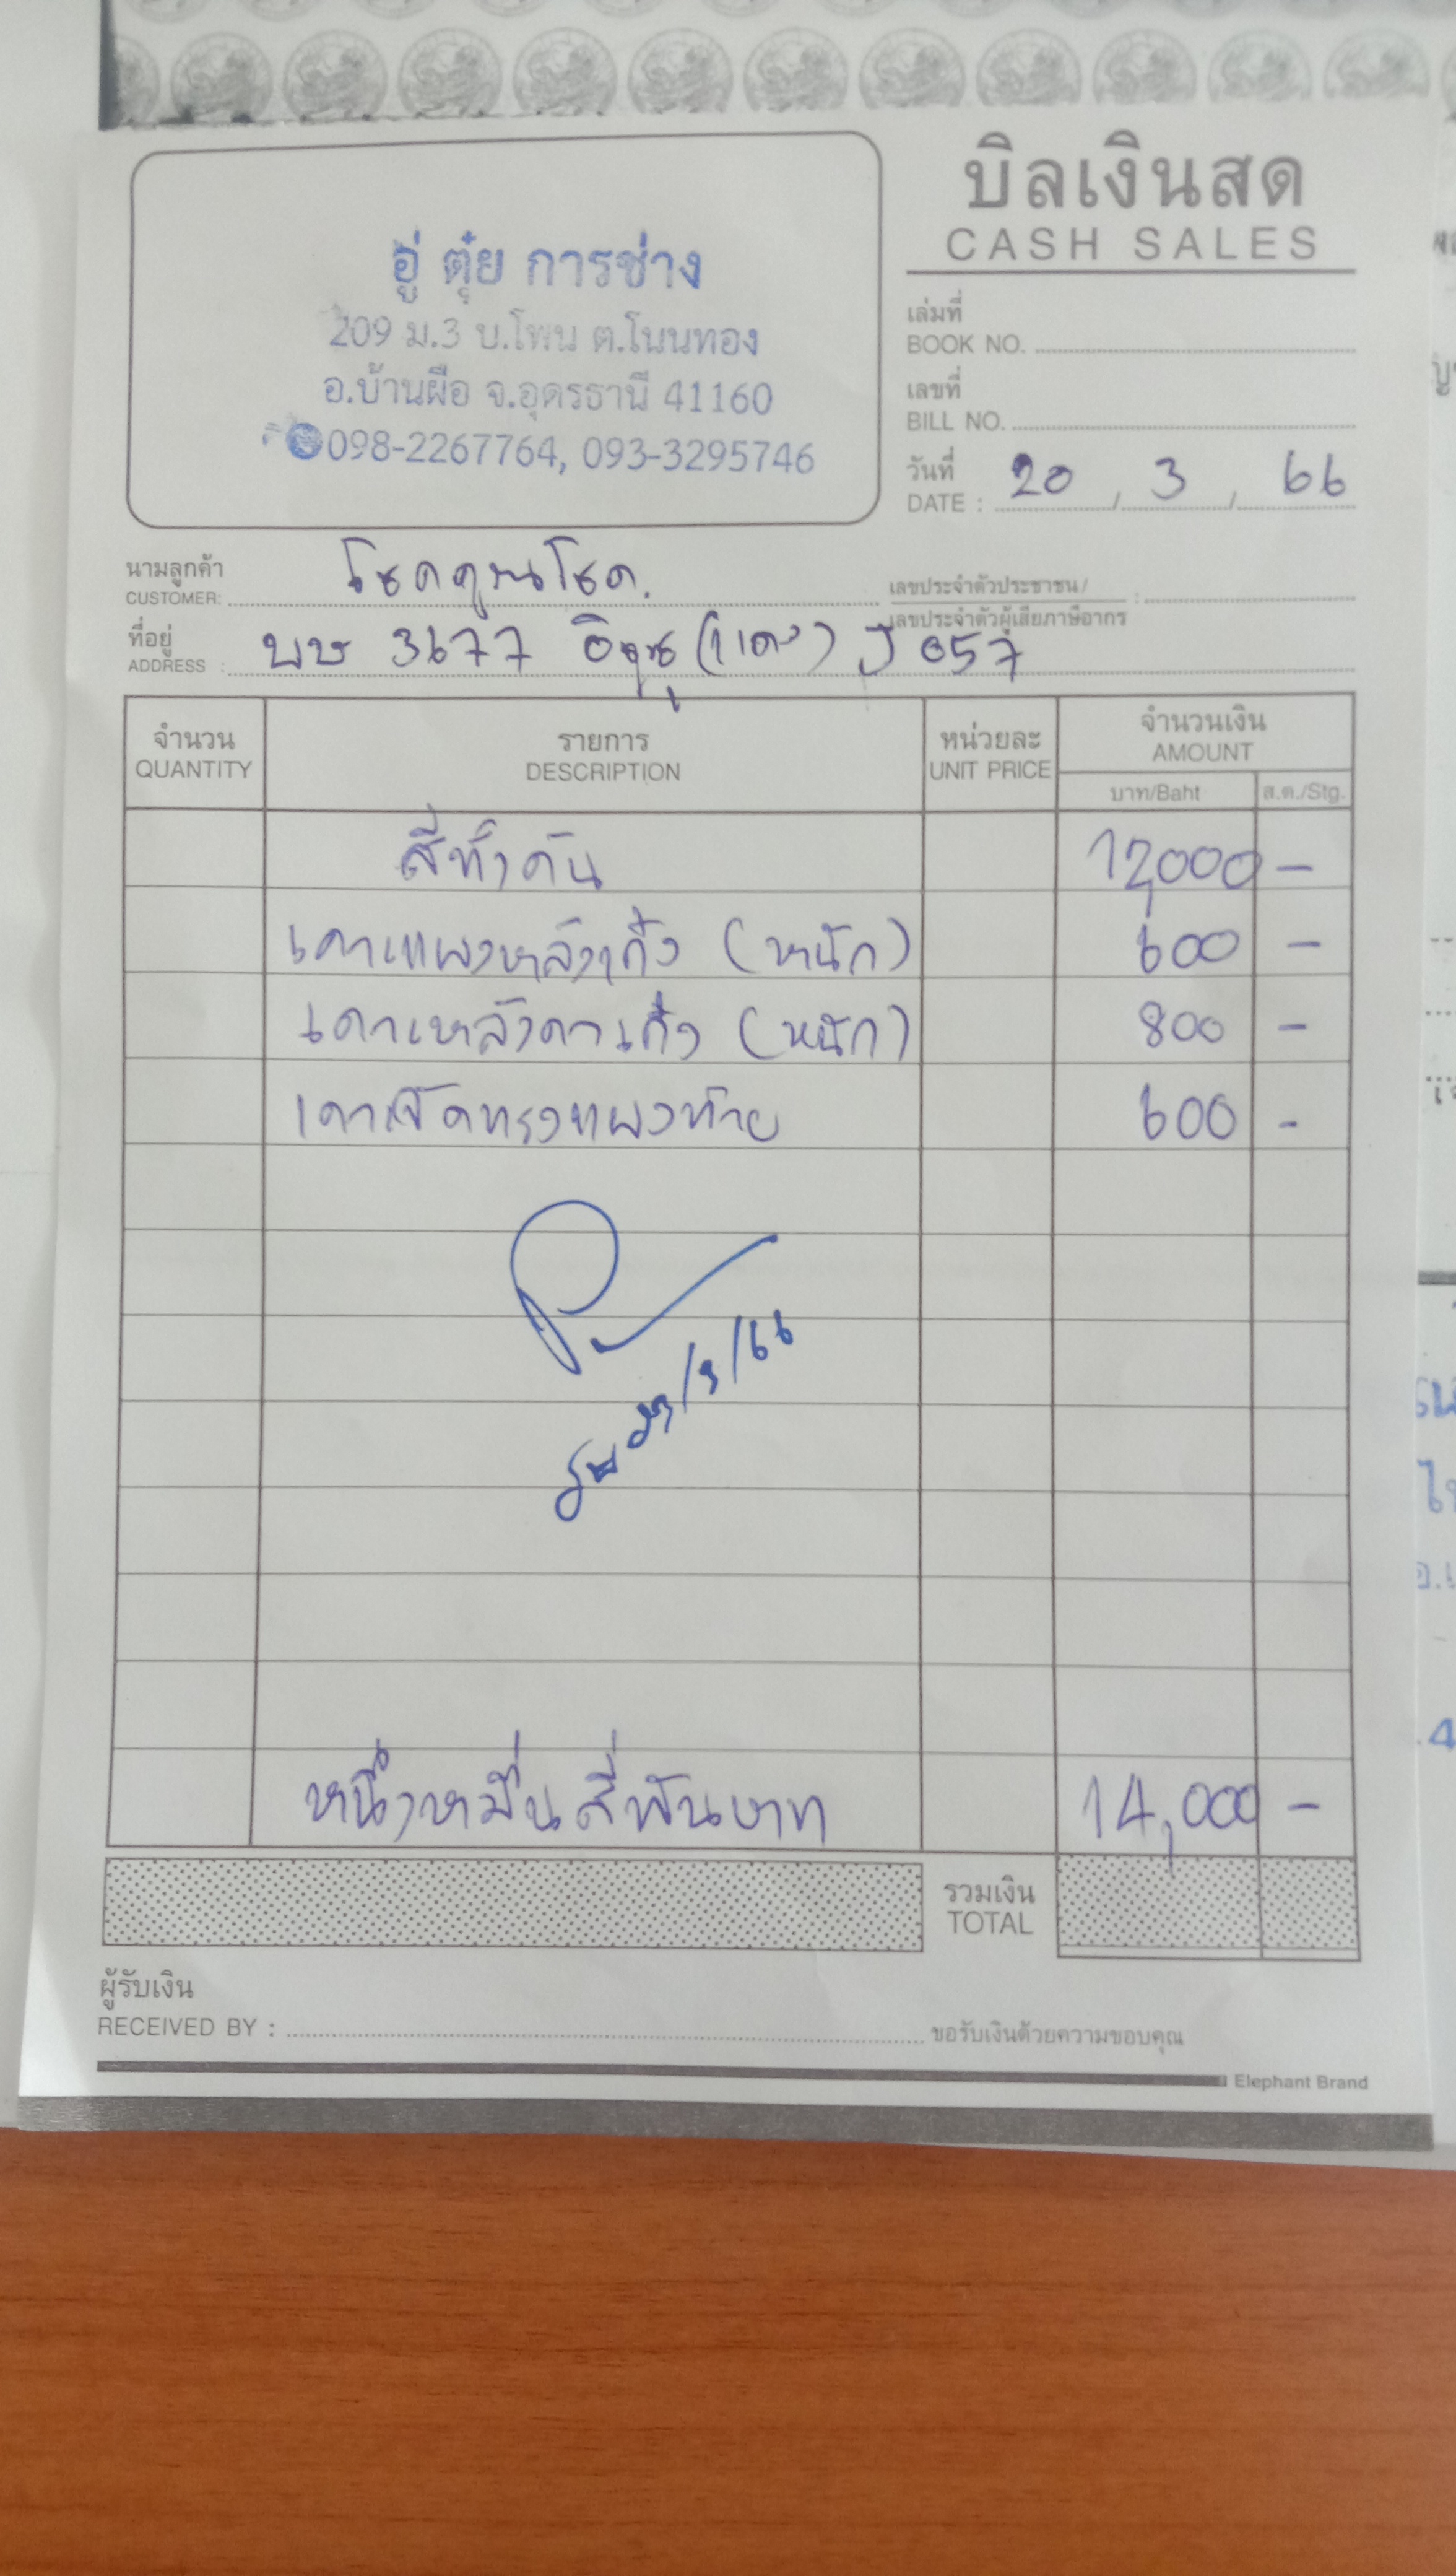 บิลเงินสด
CASH SALES
อู่ ตุ๋ย การช่าง
209 ม.3 บ.โพน ต.โนนทอง
อ.บ้านผือ จ.อุดรธานี 41160
098-2267764, 093-3295746
เล่มที่
BOOK NO.
เลขที่
BILL NO.
วันที่
DATE : 20 / 3 / 66
นามลูกค้า
CUSTOMER: โชคคูณโชค.
เลขประจำตัวประชาชน/
เลขประจำตัวผู้เสียภาษีอากร :
ที่อยู่
ADDRESS : บษ 3677 อีซูซุ (แดง) J 057
จำนวน
QUANTITY
รายการ
DESCRIPTION
หน่วยละ
UNIT PRICE
จำนวนเงิน
AMOUNT
บาท/Baht ส.ต./Stg.
สีทั้งคัน 12,000 -
เคาะแผงหลังเก๋ง (หนัก) 600 -
เคาะหลังคาเก๋ง (หนัก) 800 -
เคาะจัดทรงแผงท้าย 600 -
/3/66
หนึ่งหมื่นสี่พันบาท 14,000 -
รวมเงิน
TOTAL
ผู้รับเงิน
RECEIVED BY : ขอรับเงินด้วยความขอบคุณ
Elephant Brand